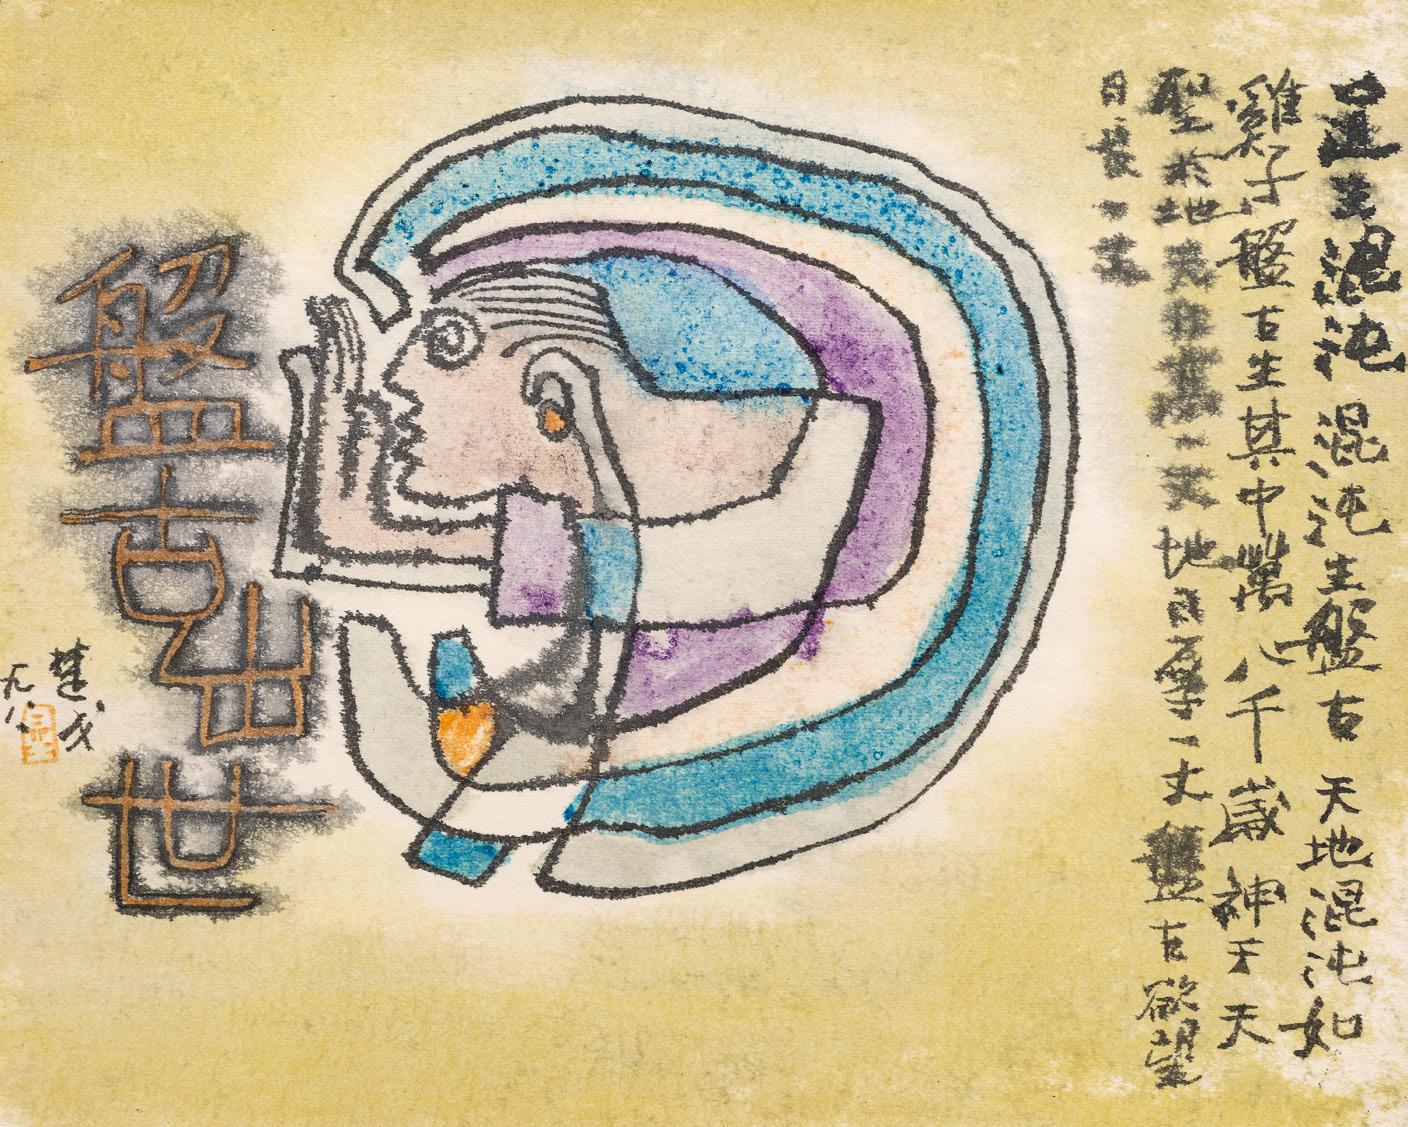 混沌 混沌生盤古 天地混沌如
雞子盤古生其中萬八千歲神于天
聖於地 一丈 地日厚一丈 盤古欲望
日長一丈
盤古出世
楚戈
九八